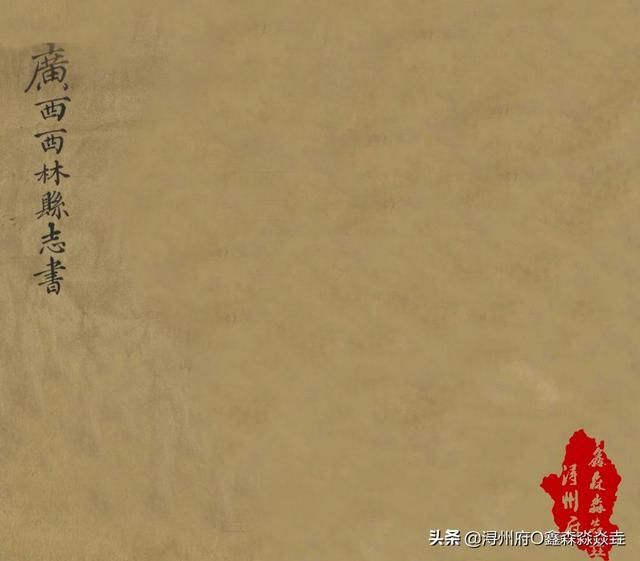 廣西西林縣志書
鑫森淼焱垚
浔州府
头条 @浔州府O鑫森淼焱垚